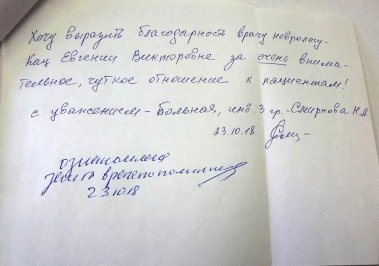 Хочу выразить благодарность врачу неврологу -
Кац Евгении Викторовне за очень внима-
тельное, чуткое отношение к пациентам!
с уважением - Больная, инв. 3 гр. Смирнова Н.А.
23.10.18.
ознакомлена
23.10.18